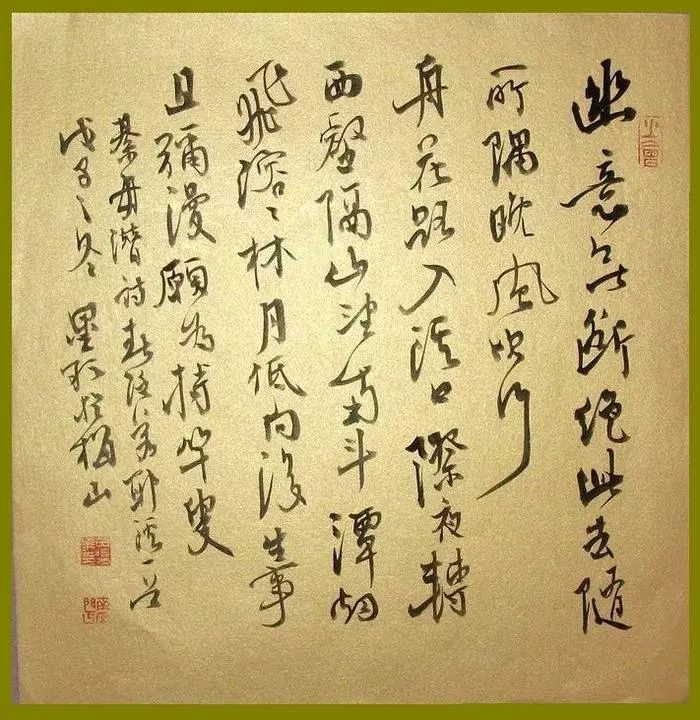 幽意無斷絕此去隨
所隅晚風吹行
舟花路入溪口際夜轉
西壑隔山望南斗潭烟
飛溶〻林月低向後生事
且彌漫願為持竿叟
綦毋潛詩春泛若耶溪一首
戊子之冬 墨於梅山